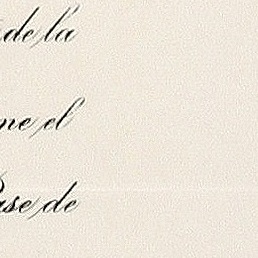 de la
me el
ase de